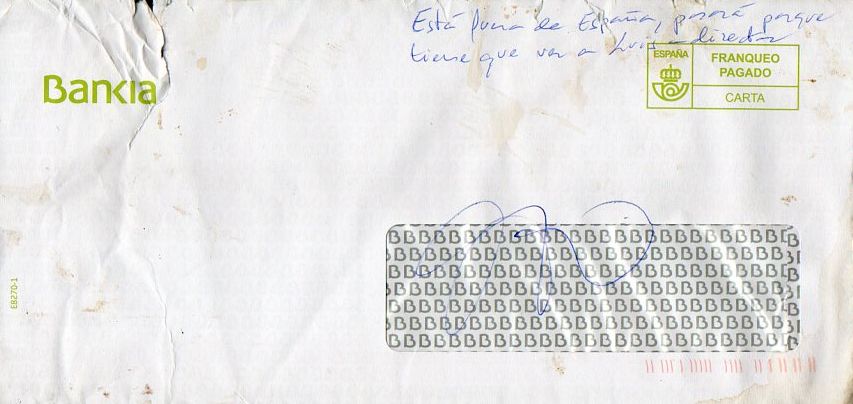 Está fuera de España, pasará porque
tiene que ver a Luis - director
Bankia
ESPAÑA
FRANQUEO
PAGADO
CARTA
E8270-1